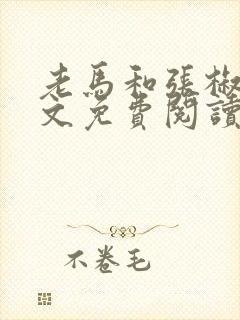 老馬和張椒
文免費閱讀
不卷毛